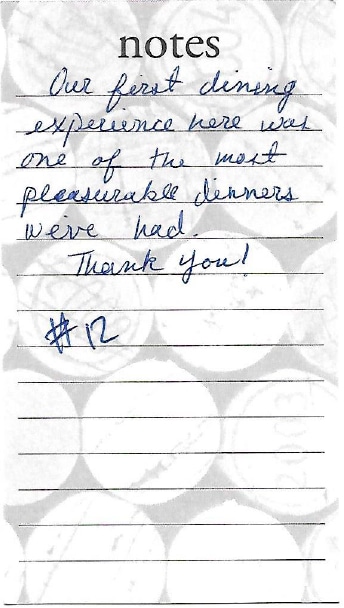 notes
Our first dining
experience here was
one of the most
pleasurable dinners
we've had.
Thank you!
#12
2003